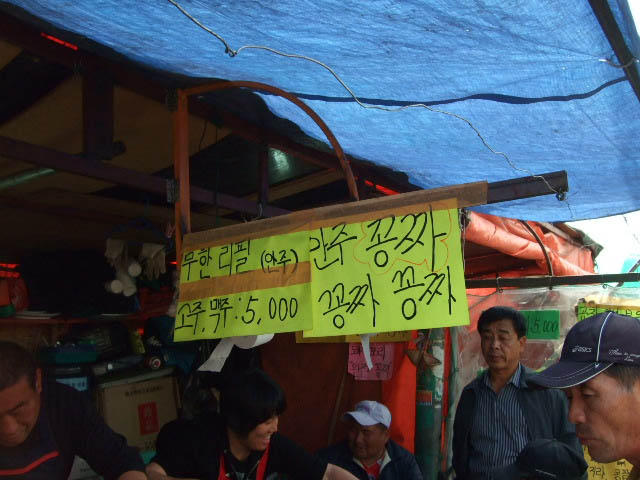 무한 리필 (안주)
소주, 맥주 : 5,000
안주 꽁짜
꽁짜 꽁짜
5,000